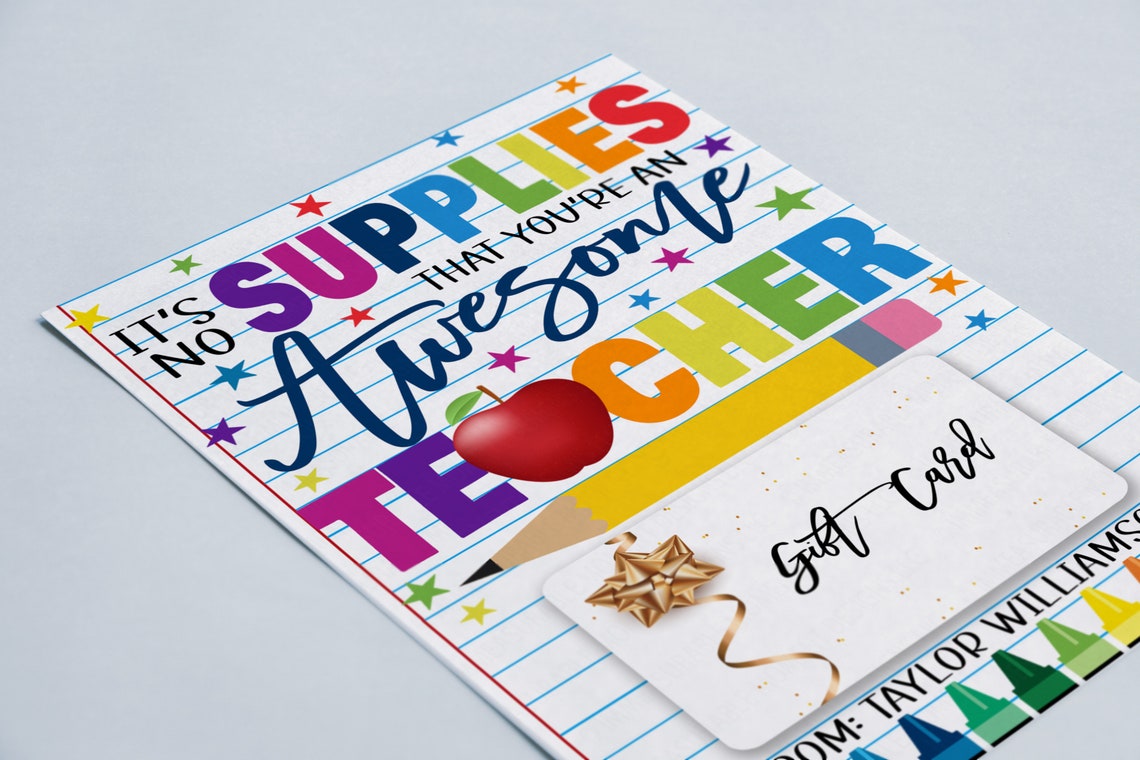 IT'S
NO
SUPPLIES
THAT YOU'RE AN
Awesome
TECHER
Gift Card
OM: TAYLOR WILLIAMS